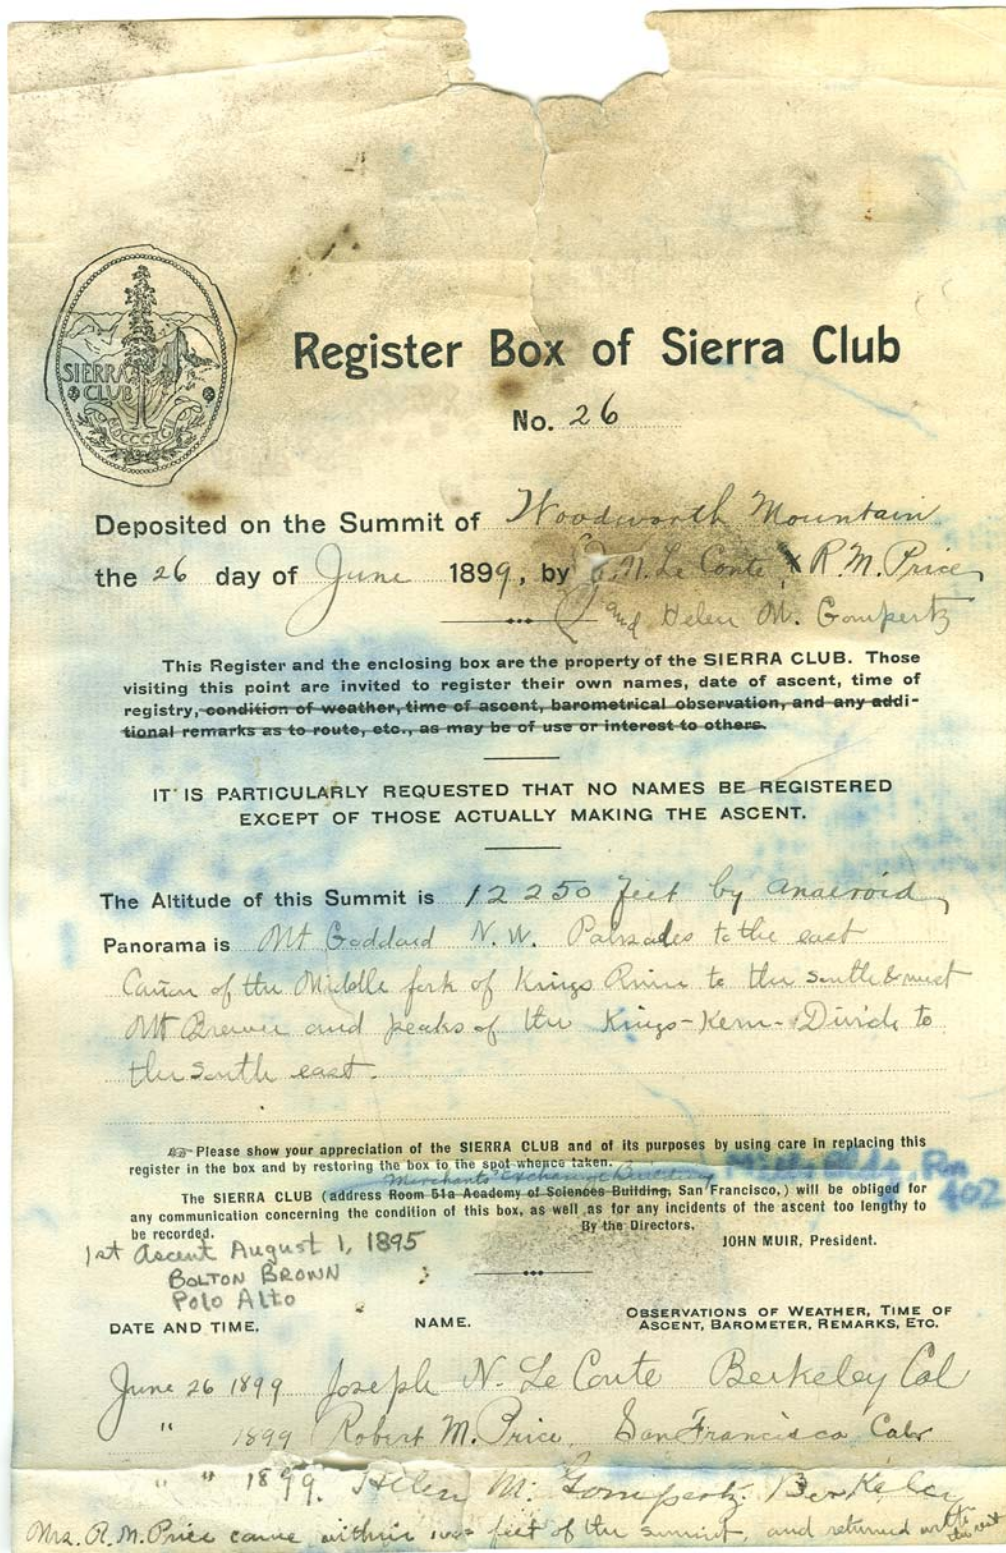 SIERRA
CLUB
MDCCCXCII
Register Box of Sierra Club
No. 26
Deposited on the Summit of Woodworth Mountain
the 26 day of June 1899, by J. N. Le Conte, & R. M. Price,
and Helen M. Gompertz
This Register and the enclosing box are the property of the SIERRA CLUB. Those
visiting this point are invited to register their own names, date of ascent, time of
registry, condition of weather, time of ascent, barometrical observation, and any addi-
tional remarks as to route, etc., as may be of use or interest to others.
IT IS PARTICULARLY REQUESTED THAT NO NAMES BE REGISTERED
EXCEPT OF THOSE ACTUALLY MAKING THE ASCENT.
The Altitude of this Summit is 12250 feet by anaeroid,
Panorama is Mt Goddard N.W. Palisades to the east
Cañon of the Middle fork of Kings River to the south & west
Mt Brewer and peaks of the Kings-Kern-Divide to
the south east.
Please show your appreciation of the SIERRA CLUB and of its purposes by using care in replacing this
register in the box and by restoring the box to the spot whence taken.
Merchants Exchange Building Mills Bldg. Rm
402
The SIERRA CLUB (address Room 51a Academy of Sciences Building, San Francisco,) will be obliged for
any communication concerning the condition of this box, as well as for any incidents of the ascent too lengthy to
be recorded. By the Directors,
JOHN MUIR, President.
1st Ascent August 1, 1895
BOLTON BROWN
Polo Alto
DATE AND TIME. NAME. OBSERVATIONS OF WEATHER, TIME OF
ASCENT, BAROMETER, REMARKS, ETC.
June 26 1899 Joseph N. Le Conte Berkeley Cal
" 1899 Robert M. Price, San Francisco Cal
" " 1899. Helen M. Gompertz. Berkeley
Mrs. R. M. Price came within feet of the summit, and returned with
the rest